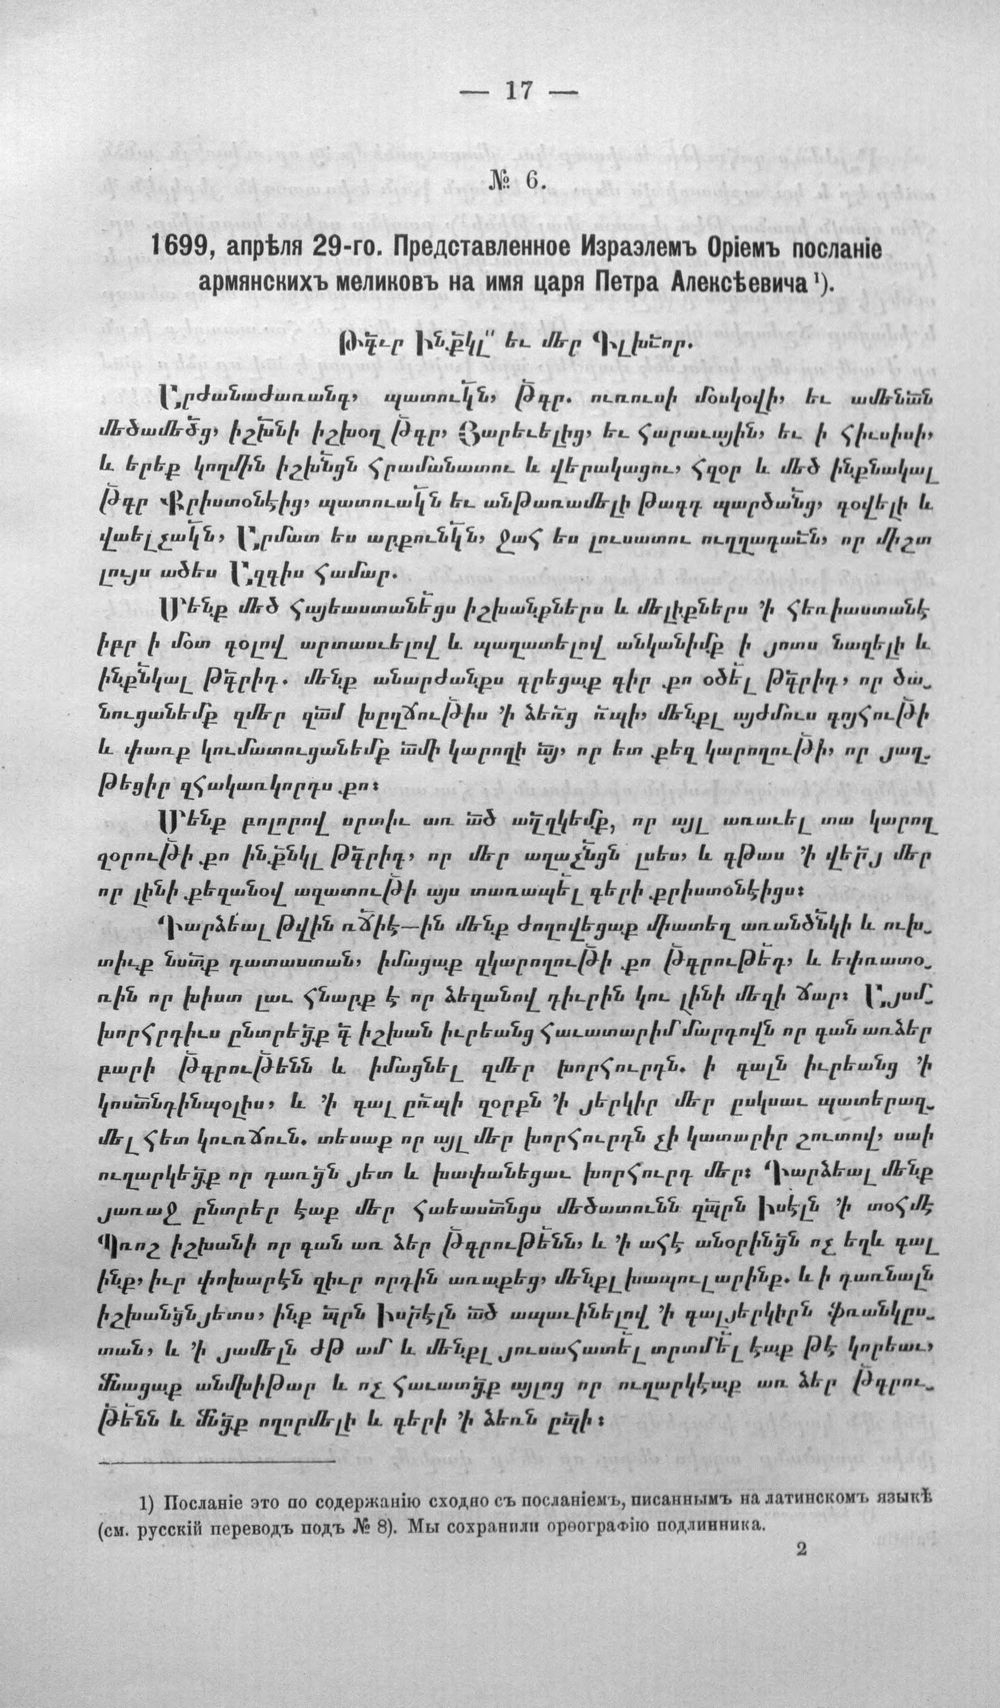 — 17 —
№ 6.
1699, апрѣля 29-го. Представленное Израэлемъ Оріемъ посланіе
армянскихъ меликовъ на имя царя Петра Алексѣевича ¹).
եւ մեր Գլխաւոր.
Արժանաժառանգ, պատուկն, Թգր. ուռուսի մօսկօվի, եւ ամենան
մեծամեծց, իշխնի իշխօղ Թգր, Յարեւելից, եւ հարաւային, եւ ի հիւսիսի,
և երեք կողմին իշխնցն հրամանատու և վերակացու, հզօր և մեծ ինքնակալ
Թգր Քրիստօնէից, պատուակն եւ անթառամելի թագդ պարծանց, գօվելի և
վաելչակն, Արմատ ես արքունկն, ջահ ես լուսատու ուղղադաւն, որ միշտ
լոյս ածես Ազգիս համար.
Մենք մեծ հայեաստանեցս իշխանքներս և մելիքներս ՚ի հեռիաստանէ
իբր ի մօտ գօլով արտասւելով և պաղատելով անկանիմք ի յոտս նազելի և
ինքնկալ Թգրիդ. մենք անարժանքս գրեցաք գիր քո օծել Թգրիդ, որ ծա-
նուցանեմք զմեր զամ խըղճութիս ՚ի ձեռց պի, մենքլ այժմուս գոհութի
և փառք կումատուցանեմք ամի կարողի այ, որ ետ քեզ կարողութի, որ յաղ-
թեցիր զհակառկորդս քո։
Մենք բոլորով սրտիւ առ ած աղղկեմք, որ այլ առաւել տա կարող
զօրութի քո ինքնկլ Թգրիդ, որ մեր աղաչնցն լսես, և գթաս ՚ի վերյ մեր
որ լինի քեզանօվ ազատութի այս տառապել գերի քրիստօնէիցս։
Դարձեալ թվին ռճիէ—ին մենք ժողովեցաք միատեղ առանծնկի և ուխ-
տիւք նստք դատաստան, իմացաք զկարողութի քո Թգրութեդ, և եփռատօ-
ռին որ խիստ լաւ հնարք է որ ձեզանով դիւրին կու լինի մեզի ճար։ Այսմ
խորհրդիւս ընտրեցք գ իշխան իւրեանց հաւատարիմ մարդովն որ գան առձեր
բարի Թգրութենն և իմացնել զմեր խորհուրդն. ի գալն իւրեանց ՚ի
կոստնդինպօլիս, և ՚ի գալ ըռպի զօրքն ՚ի յերկիր մեր ըսկսաւ պատերազ-
մել հետ կուռճուն. տեսաք որ այլ մեր խորհուրդն չի կատարիր շուտով, սաի
ուղարկեցք որ դառցն յետ և խափանեցաւ խորհուրդ մեր։ Դարձեալ մենք
յառաջ ընտրեր էաք մեր հաեաստնցս մեծատունն զպրն Իսէլն ՚ի տօհմէ
Պռոշ իշխանի որ գան առ ձեր Թգրութենն, և ՚ի ահէ անօրինցն ոչ եղև գալ
ինք, իւր փոխարէն զիւր որդին առաքեց, մենքլ խապուլ արինք. և ի դառնալն
իշխանցն յետս, ինք պրն Իսրէլն ած ապաւինելով ՚ի գալ յերկիրն ֆռանկըս-
տան, և ՚ի յամելն ժթ ամ և մենքլ յուսահատել տրտմել էաք թէ կորեաւ,
Մնացաք անմխիթար և ոչ հաւատցք այլոց որ ուղարկէաք առ ձեր Թգրու-
թենն և Մնցք ողորմելի և գերի ՚ի ձեռն ըպի։
1) Посланіе это по содержанію сходно съ посланіемъ, писаннымъ на латинскомъ языкѣ
(см. русскій переводъ подъ № 8). Мы сохранили орѳографію подлинника.
2